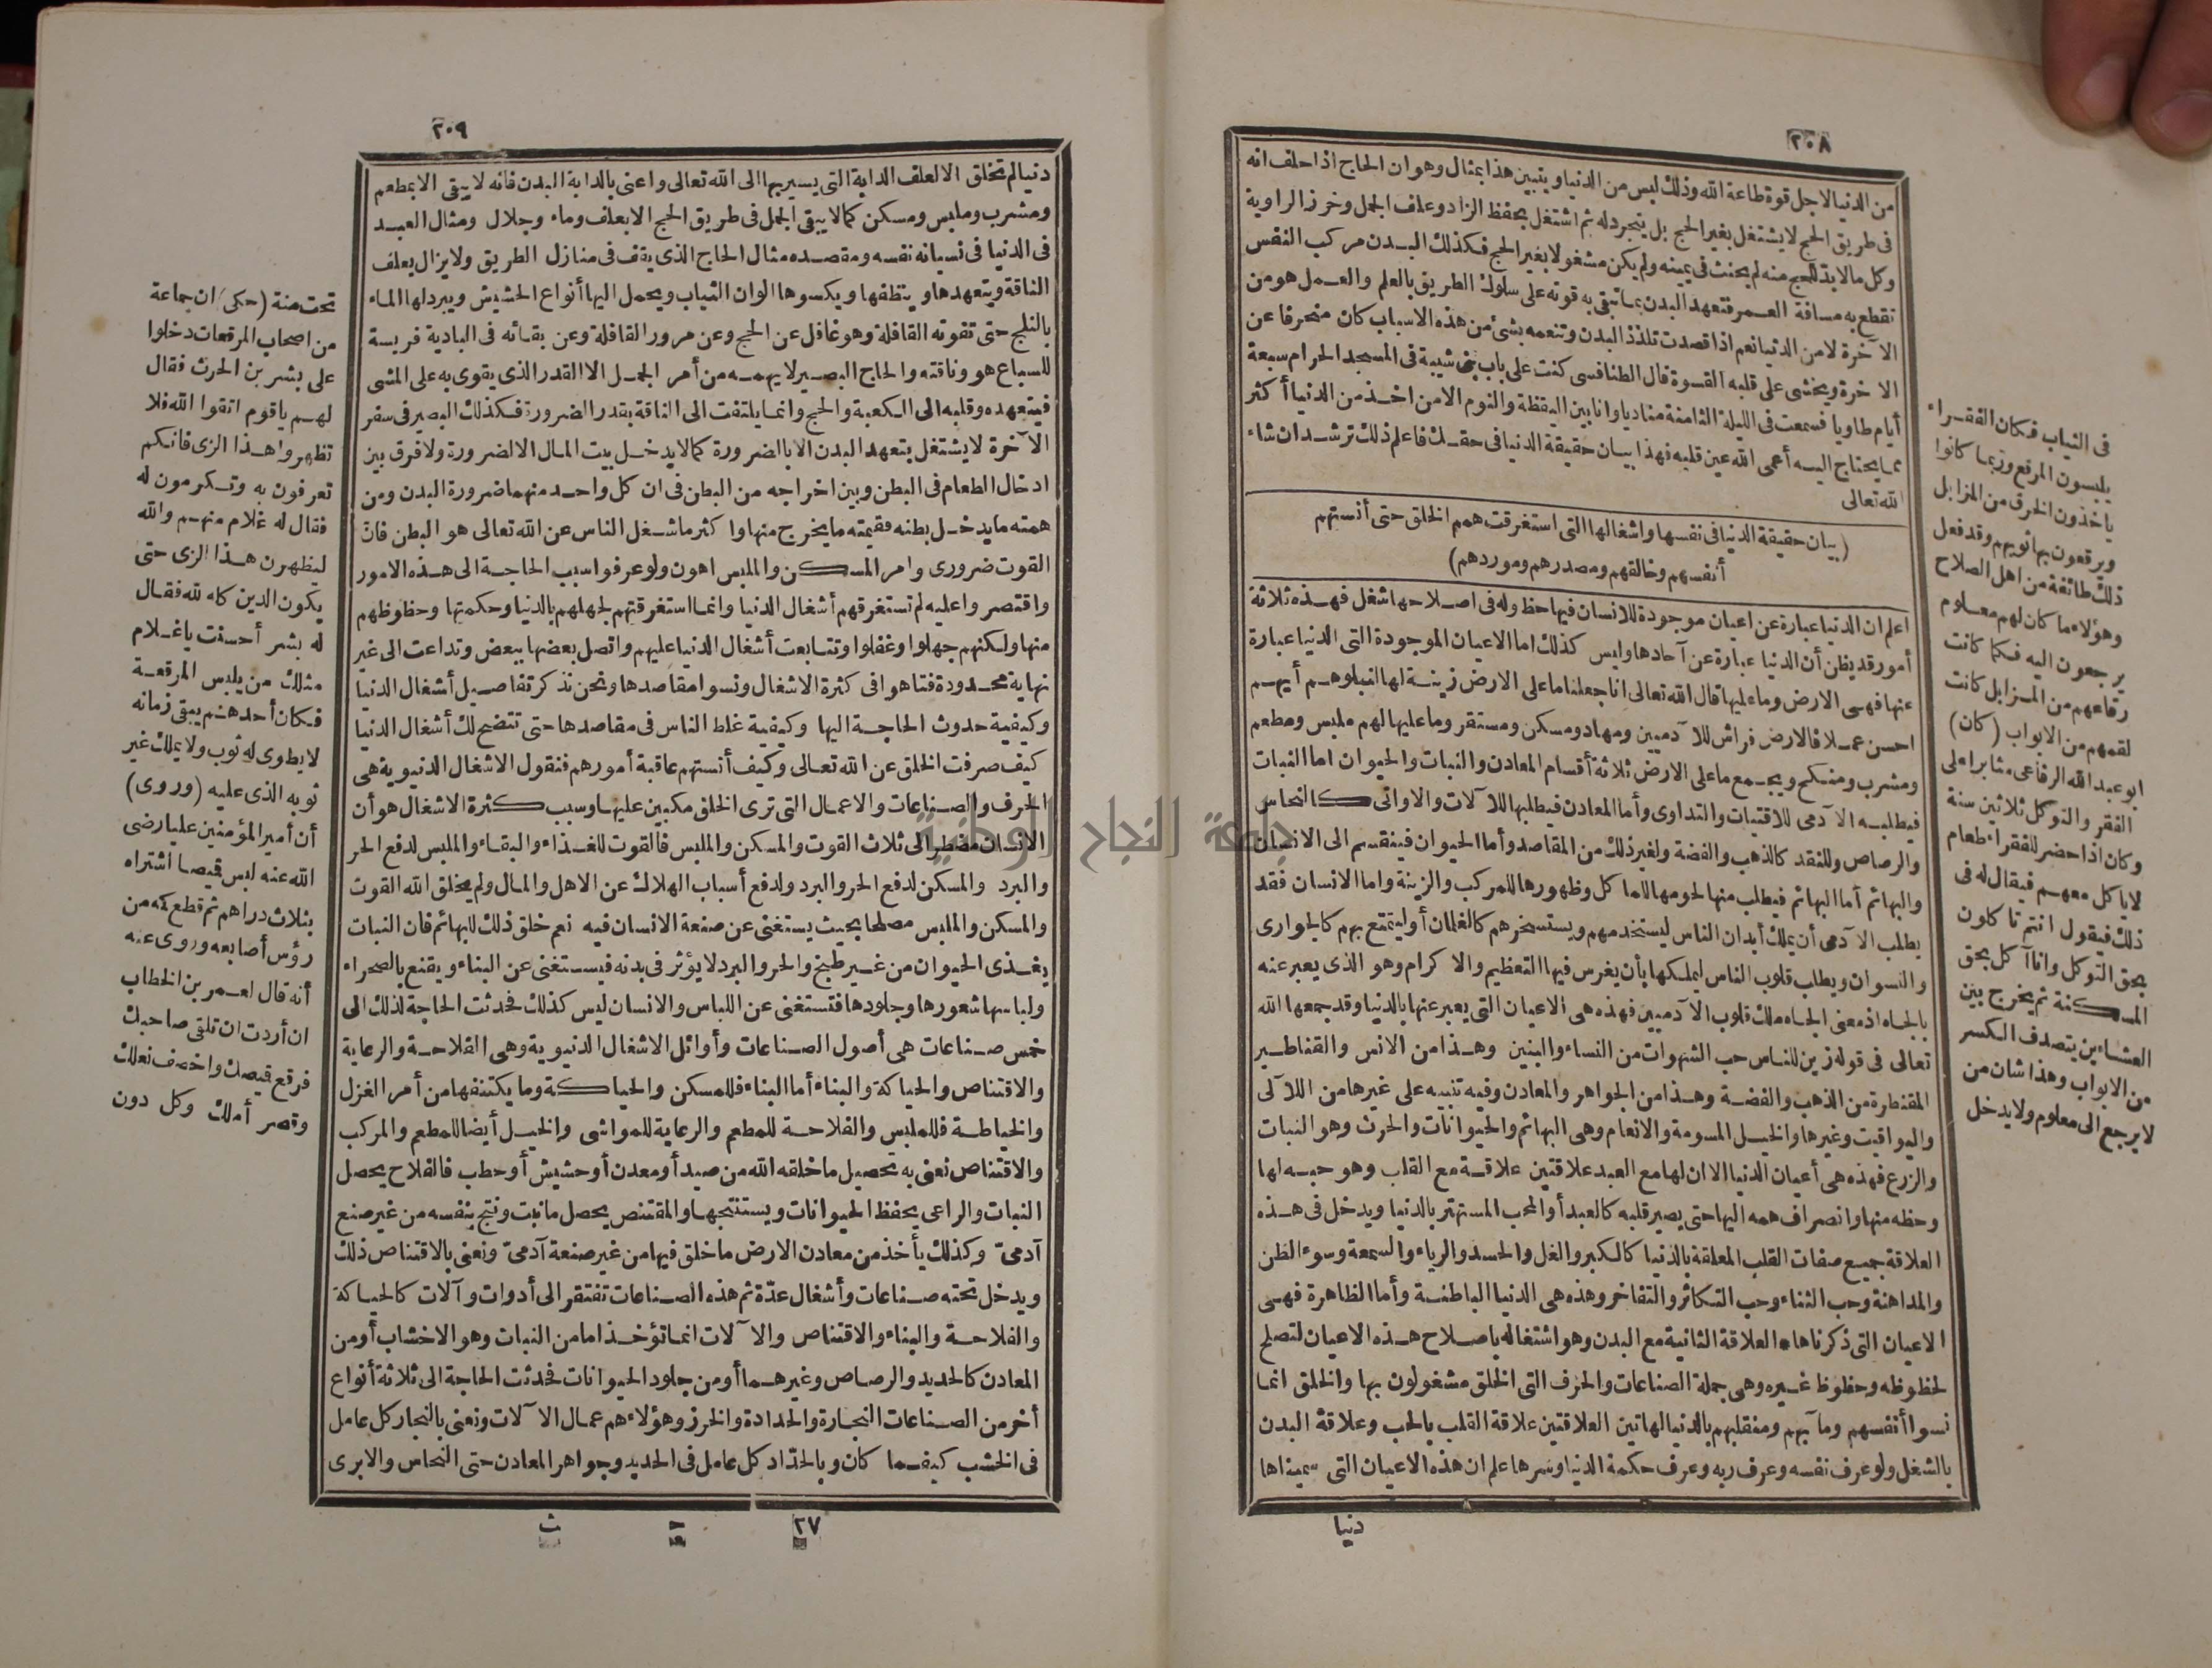 ٢٠٨
من الدنيا لاجل قوة طاعة الله وذلك ليس من الدنيا ويتبين هذا بمثال وهو ان الحاج اذا حلف انه
فى طريق الحج لا يشتغل بغير الحج بل يتجرد له ثم اشتغل بحفظ الزاد وعلف الجمل وخرز الراوية
وكل ما لا بد للحج منه لم يحنث فى يمينه ولم يكن مشغولا بغير الحج فكذلك البدن مركب النفس
تقطع به مسافة العمر فتعهد البدن بما تبقى به قوته على سلوك الطريق بالعلم والعمل هو من
الآخرة لا من الدنيا نعم اذا قصدت تلذذ البدن وتنعمه بشئ من هذه الاسباب كان منحرفا عن
الآخرة ويخشى على قلبه القسوة قال الطنافسى كنت على باب بنى شيبة فى المسجد الحرام سبعة
أيام طاويا فسمعت فى الليلة الثامنة مناديا وانا بين اليقظة والنوم الا من اخذ من الدنيا أكثر
مما يحتاج اليه أعمى الله عين قلبه فهذا بيان حقيقة الدنيا فى حقك فاعلم ذلك ترشد ان شاء
الله تعالى
(بيان حقيقة الدنيا فى نفسها واشغالها التى استغرقت همم الخلق حتى أنستهم
أنفسهم وخالقهم ومصدرهم وموردهم)
اعلم ان الدنيا عبارة عن اعيان موجودة للانسان فيها حظ وله فى اصلاحها شغل فهذه ثلاثة
أمور قد يظن أن الدنيا عبارة عن آحادها وليس كذلك اما الاعيان الموجودة التى الدنيا عبارة
عنها فهى الارض وما عليها قال الله تعالى انا جعلنا ما على الارض زينة لها لنبلوهم أيهم
احسن عملا فالارض فراش للآدميين ومهاد ومسكن ومستقر وما عليها لهم ملبس ومطعم
ومشرب ومنكح ويجمع ما على الارض ثلاثة أقسام المعادن والنبات والحيوان اما النبات
فيطلبه الآدمى للاقتيات والتداوى وأما المعادن فيطلبها للآلات والاوانى كالنحاس
والرصاص وللنقد كالذهب والفضة ولغير ذلك من المقاصد وأما الحيوان فينقسم الى الانسان
والبهائم أما البهائم فيطلب منها لحومها للمآكل وظهورها للمركب والزينة واما الانسان فقد
يطلب الآدمى أن يملك أبدان الناس ليستخدمهم ويستسخرهم كالغلمان أو ليتمتع بهم كالجوارى
والنسوان ويطلب قلوب الناس ليملكها بأن يغرس فيها التعظيم والاكرام وهو الذى يعبر عنه
بالجاه اذ معنى الجاه ملك قلوب الآدميين فهذه هى الاعيان التى يعبر عنها بالدنيا وقد جمعها الله
تعالى فى قوله زين للناس حب الشهوات من النساء والبنين وهذا من الانس والقناطير
المقنطرة من الذهب والفضة وهذا من الجواهر والمعادن وفيه تنبيه على غيرها من اللآلى
واليواقيت وغيرها والخيل المسومة والانعام وهى البهائم والحيوانات والحرث وهو النبات
والزرع فهذه هى أعيان الدنيا الا ان لها مع العبد علاقتين علاقة مع القلب وهو حبه لها
وحظه منها وانصراف همه اليها حتى يصير قلبه كالعبد أو المحب المستهتر بالدنيا ويدخل فى هذه
العلاقة جميع صفات القلب المعلقة بالدنيا كالكبر والغل والحسد والرياء والسمعة وسوء الظن
والمداهنة وحب الثناء وحب التكاثر والتفاخر وهذه هى الدنيا الباطنة وأما الظاهرة فهى
الاعيان التى ذكرناها * العلاقة الثانية مع البدن وهو اشتغاله باصلاح هذه الاعيان لتصلح
لحظوظه وحظوظ غيره وهى جملة الصناعات والحرف التى الخلق مشغولون بها والخلق انما
نسوا أنفسهم ومآبهم ومنقلبهم بالدنيا لهاتين العلاقتين علاقة القلب بالحب وعلاقة البدن
بالشغل ولو عرف نفسه وعرف ربه وعرف حكمة الدنيا وسرها علم ان هذه الاعيان التى سميناها
دنيا
فى الثياب فكان الفقراء
يلبسون المرقع وربما كانوا
يأخذون الخرق من المزابل
ويرقعون بها ثوبهم وقد فعل
ذلك طائفة من اهل الصلاح
وهؤلاء ما كان لهم معلوم
يرجعون اليه فكما كانت
رقاعهم من المزابل كانت
لقمهم من الابواب (كان)
ابو عبد الله الرفاعى مثابرا على
الفقر والتوكل ثلاثين سنة
وكان اذا حضر للفقراء طعام
لا يأكل معهم فيقال له فى
ذلك فيقول انتم تأكلون
بحق التوكل وانا آكل بحق
المسكنة ثم يخرج بين
العشاءين يتصدف الكسر
من الابواب وهذا شان من
لا يرجع الى معلوم ولا يدخل
٢٠٩
دنيا لم تخلق الا لعلف الدابة التى يسير بها الى الله تعالى واعنى بالدابة البدن فانه لا يبقى الا بمطعم
ومشرب وملبس ومسكن كما لا يبقى الجمل فى طريق الحج الا بعلف وماء وجلال ومثال العبد
فى الدنيا فى نسيانه نفسه ومقصده مثال الحاج الذى يقف فى منازل الطريق ولا يزال يعلف
الناقة ويتعهدها وينظفها ويكسوها الوان الثياب ويحمل اليها أنواع الحشيش ويبرد لها الماء
بالثلج حتى تفوته القافلة وهو غافل عن الحج وعن مرور القافلة وعن بقائه فى البادية فريسة
للسباع هو وناقته والحاج البصير لا يهمه من أمر الجمل الا القدر الذى يقوى به على المشى
فيتعهده وقلبه الى الكعبة والحج وانما يلتفت الى الناقة بقدر الضرورة فكذلك البصير فى سفر
الآخرة لا يشتغل بتعهد البدن الا بالضرورة كما لا يدخل بيت المال الا لضرورة ولا فرق بين
ادخال الطعام فى البطن وبين اخراجه من البطن فى ان كل واحد منهما ضرورة البدن ومن
همته ما يدخل بطنه فقيمته ما يخرج منها واكثر ما شغل الناس عن الله تعالى هو البطن فان
القوت ضرورى وامر المسكن والملبس اهون ولو عرفوا سبب الحاجة الى هذه الامور
واقتصروا عليه لم تستغرقهم أشغال الدنيا وانما استغرقتهم لجهلهم بالدنيا وحكمتها وحظوظهم
منها ولكنهم جهلوا وغفلوا وتتابعت أشغال الدنيا عليهم واتصل بعضها ببعض وتداعت الى غير
نهاية محدودة فتاهوا فى كثرة الاشغال ونسوا مقاصدها ونحن نذكر تفاصيل أشغال الدنيا
وكيفية حدوث الحاجة اليها وكيفية غلط الناس فى مقاصدها حتى تتضح لك أشغال الدنيا
كيف صرفت الخلق عن الله تعالى وكيف أنستهم عاقبة أمورهم فنقول الاشغال الدنيوية هى
الحرف والصناعات والاعمال التى ترى الخلق مكبين عليها وسبب كثرة الاشغال هو أن
الانسان مضطر الى ثلاث القوت والمسكن والملبس فالقوت للغذاء والبقاء والملبس لدفع الحر
والبرد والمسكن لدفع الحر والبرد ولدفع أسباب الهلاك عن الاهل والمال ولم يخلق الله القوت
والمسكن والملبس مصلحا بحيث يستغنى عن صنعة الانسان فيه نعم خلق ذلك للبهائم فان النبات
يغذى الحيوان من غير طبخ والحر والبرد لا يؤثر فى بدنه فيستغنى عن البناء ويقنع بالصحراء
ولباسها شعورها وجلودها فتستغنى عن اللباس والانسان ليس كذلك فحدثت الحاجة لذلك الى
خمس صناعات هى أصول الصناعات وأوائل الاشغال الدنيوية وهى الفلاحة والرعاية
والاقتناص والحياكة والبناء أما البناء فللمسكن والحياكة وما يكتنفها من أمر الغزل
والخياطة فللملبس والفلاحة للمطعم والرعاية للمواشى والخيل أيضا للمطعم والمركب
والاقتناص نعنى به تحصيل ما خلقه الله من صيد أو معدن أو حشيش أو حطب فالفلاح يحصل
النبات والراعى يحفظ الحيوانات ويستنتجها والمقتنص يحصل ما نبت ونتج بنفسه من غير صنع
آدمى وكذلك يأخذ من معادن الارض ما خلق فيها من غير صنعة آدمى ونعنى بالاقتناص ذلك
ويدخل تحته صناعات وأشغال عدّة ثم هذه الصناعات تفتقر الى أدوات وآلات كالحياكة
والفلاحة والبناء والاقتناص والآلات انما تؤخذ اما من النبات وهو الاخشاب أو من
المعادن كالحديد والرصاص وغيرهما أو من جلود الحيوانات فحدثت الحاجة الى ثلاثة أنواع
أخر من الصناعات النجارة والحدادة والخرز وهؤلاء هم عمال الآلات ونعنى بالنجار كل عامل
فى الخشب كيفما كان وبالحدّاد كل عامل فى الحديد وجواهر المعادن حتى النحاس والابرى
٢٧ حـ ث
تحت منة (حكى) ان جماعة
من اصحاب المرقعات دخلوا
على بشر بن الحرث فقال
لهم ياقوم اتقوا الله فلا
تظهروا هذا الزى فانكم
تعرفون به وتكرمون له
فقال له غلام منهم والله
ليظهرن هذا الزى حتى
يكون الدين كله لله فقال
له بشر أحسنت ياغلام
مثلك من يلبس المرقعة
فكان أحدهم يبقى زمانه
لا يطوى له ثوب ولا يملك غير
ثوبه الذى عليه (وروى)
أن أمير المؤمنين عليا رضى
الله عنه لبس قميصا اشتراه
بثلاث دراهم ثم قطع كمه من
رؤس أصابعه وروى عنه
أنه قال لعمر بن الخطاب
ان أردت ان تلقى صاحبك
فرقع قميصك واخصف نعلك
وقصر أملك وكل دون
جامعة النجاح الوطنية